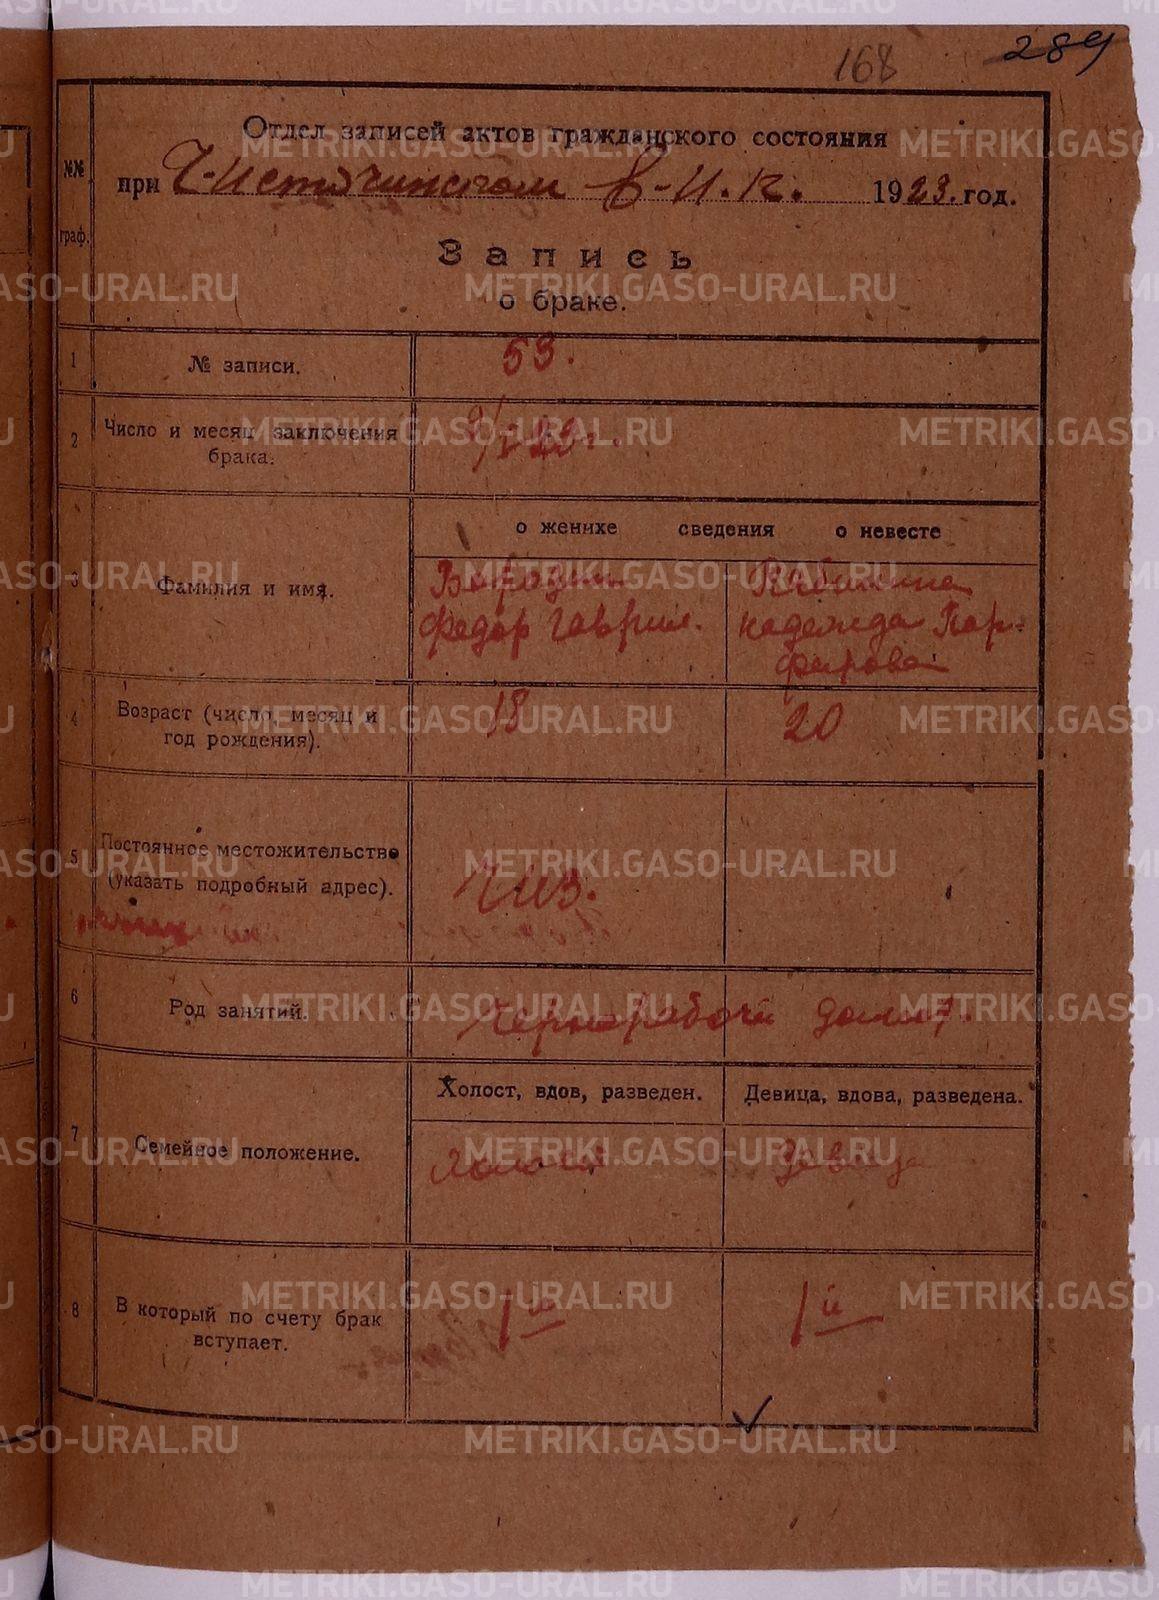 168
289
Отдел записей актов гражданского состояния
№№ граф.
при Ч-Источинском В-И.К. 1923 год.
Запись
о браке.
1 № записи. 53.
2 Число и месяц заключения
брака.
о женихе сведения о невесте
3 Фамилия и имя.
Бородин
Федор Гаврил.
Надежда Пор-
фирова
4 Возраст (число, месяц и
год рождения).
18 20
5 Постоянное местожительство
(указать подробный адрес).
Чиз.
6 Род занятий. Чернорабочй домаш.
Холост, вдов, разведен. Девица, вдова, разведена.
7 Семейное положение. Холост Девица
8 В который по счету брак
вступает.
1й 1й
METRIKI.GASO-URAL.RU